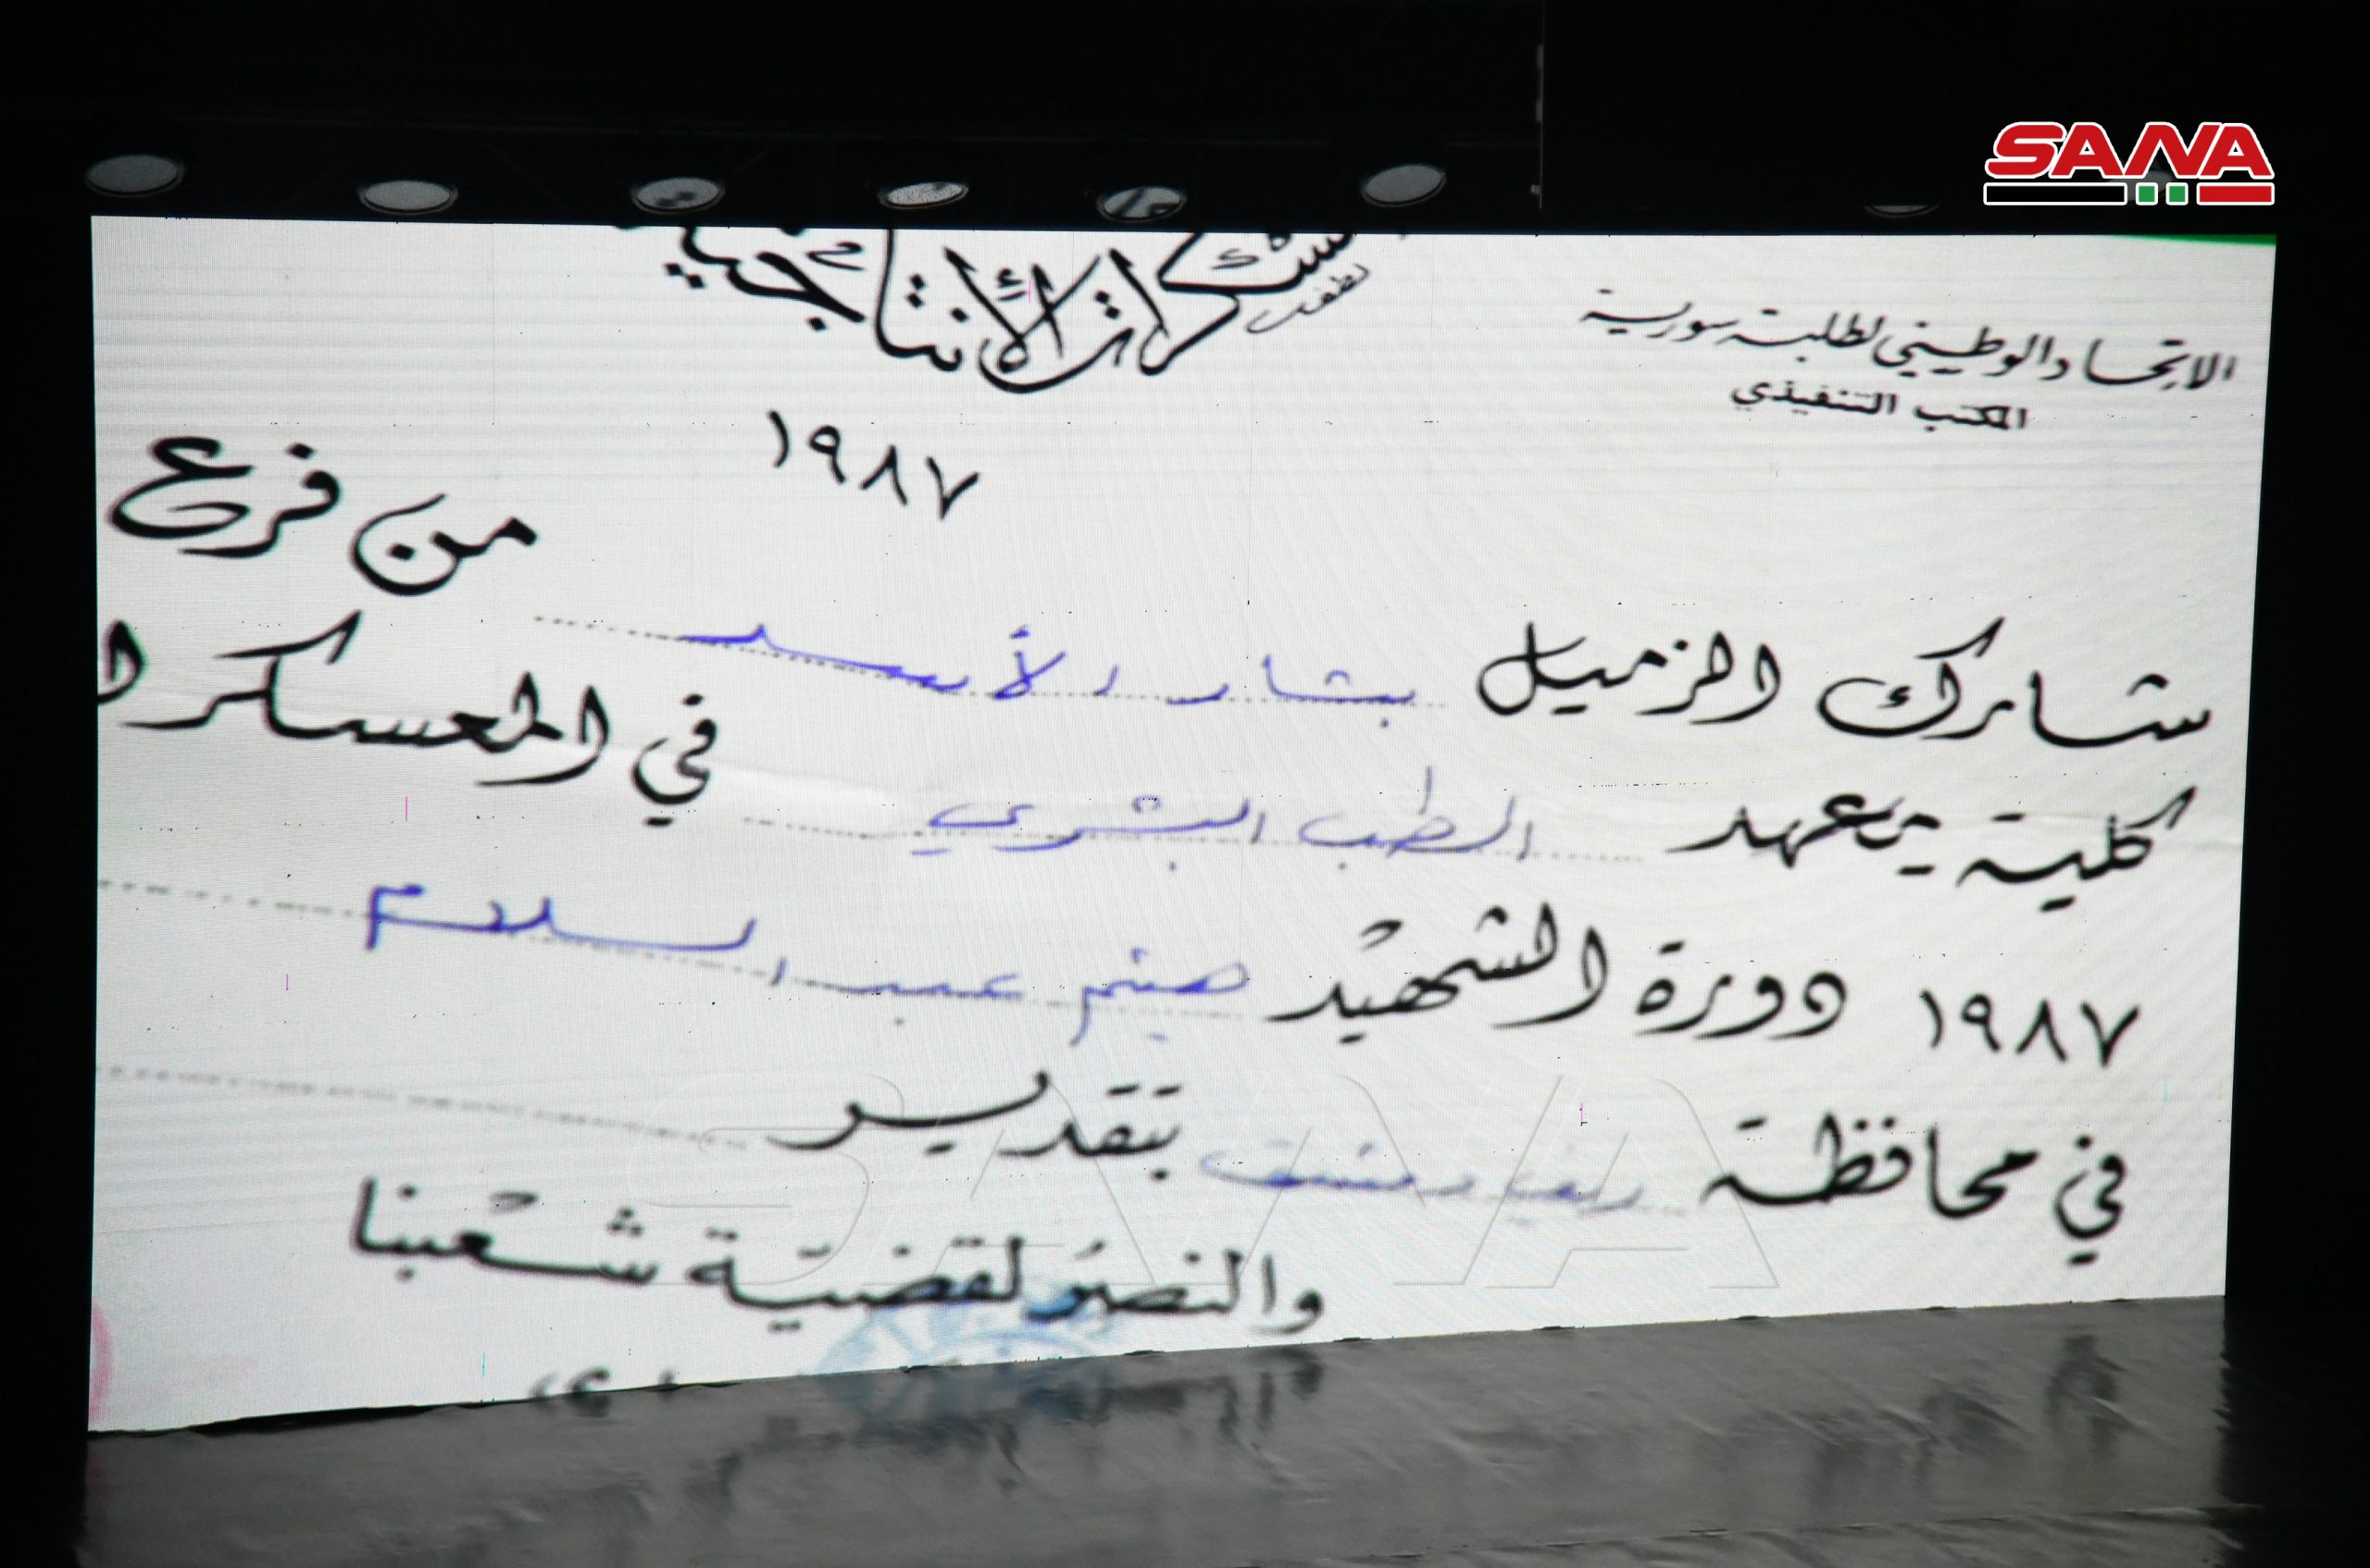 SANA
الاتحاد الوطني لطلبة سورية
المكتب التنفيذي
الأنتاجية
١٩٨٧
شارك الزميل بشار الأسد من فرع
كلية معهد الطب البشري في المعسكر
١٩٨٧ دورة الشهيد هيثم عبد السلام
في محافظة ريف دمشق بتقدير
والنصر لقضية شعبنا
SANA